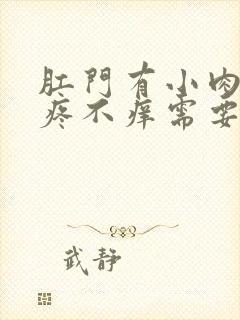 肛門有小肉
疼不痒需要
武静